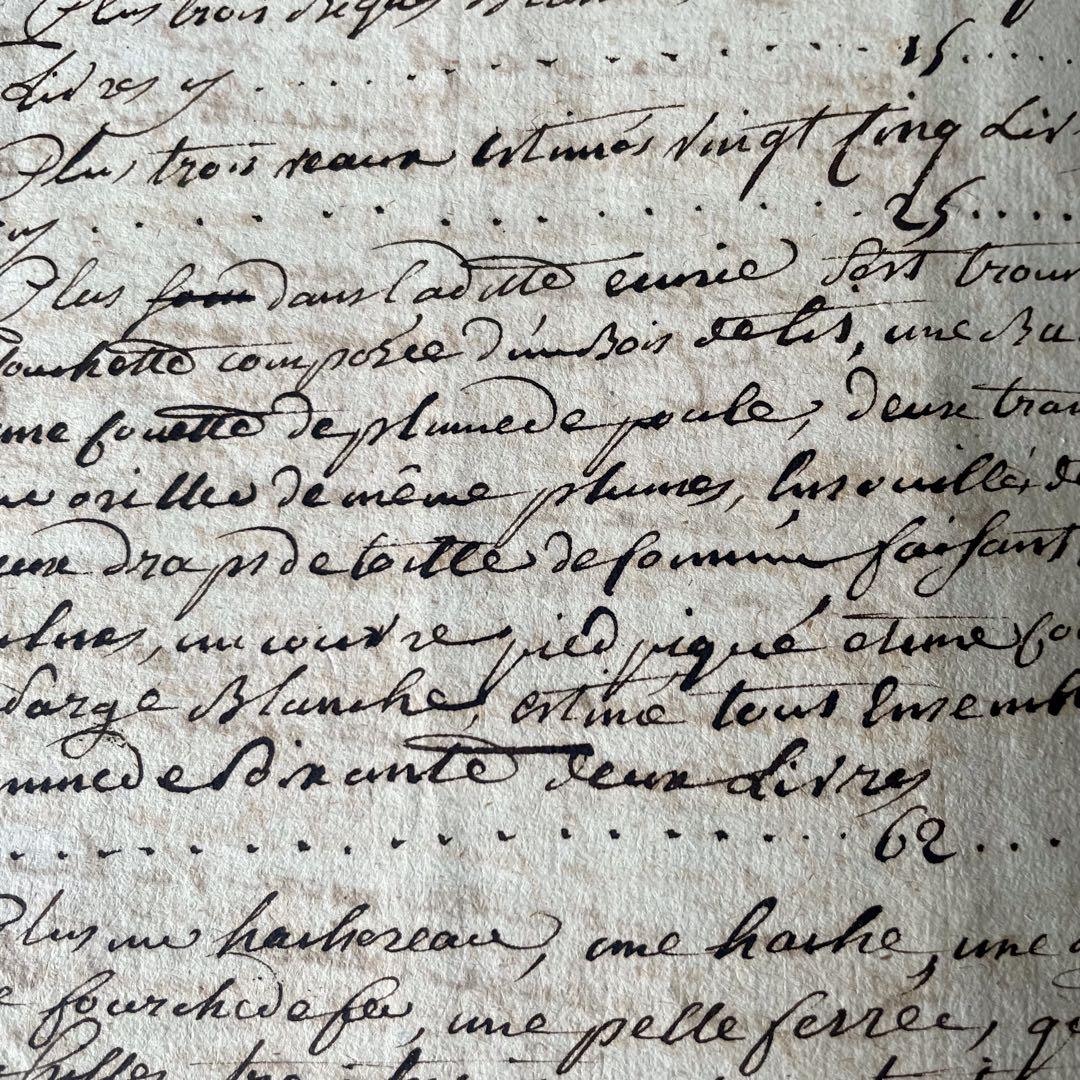 Plus trois
Livres cy . . . . . . . . . . . . . . 15 . . . .
Plus trois veaux estimés vingt Cinq Liv
cy . . . . . . . . . . . . . . 25 . . . .
Plus dans Laditte ecurie s'est trouv
couchette composée d'un Bois de lit, une Ba
une couette de plume de poule, deux trav
un orillier de même plumes, Les ouillés de
eux draps de toille de fommu faisant
aulnes, un couvre pied piqué et une co
Sarge Blanche, estimé tous Ensembl
omme de Soixante deux Livres
. . . . . . . . . . . . . . 62 . . .
Plus un hachereau, une hache, une
fourche de fer, une pelle ferrée,